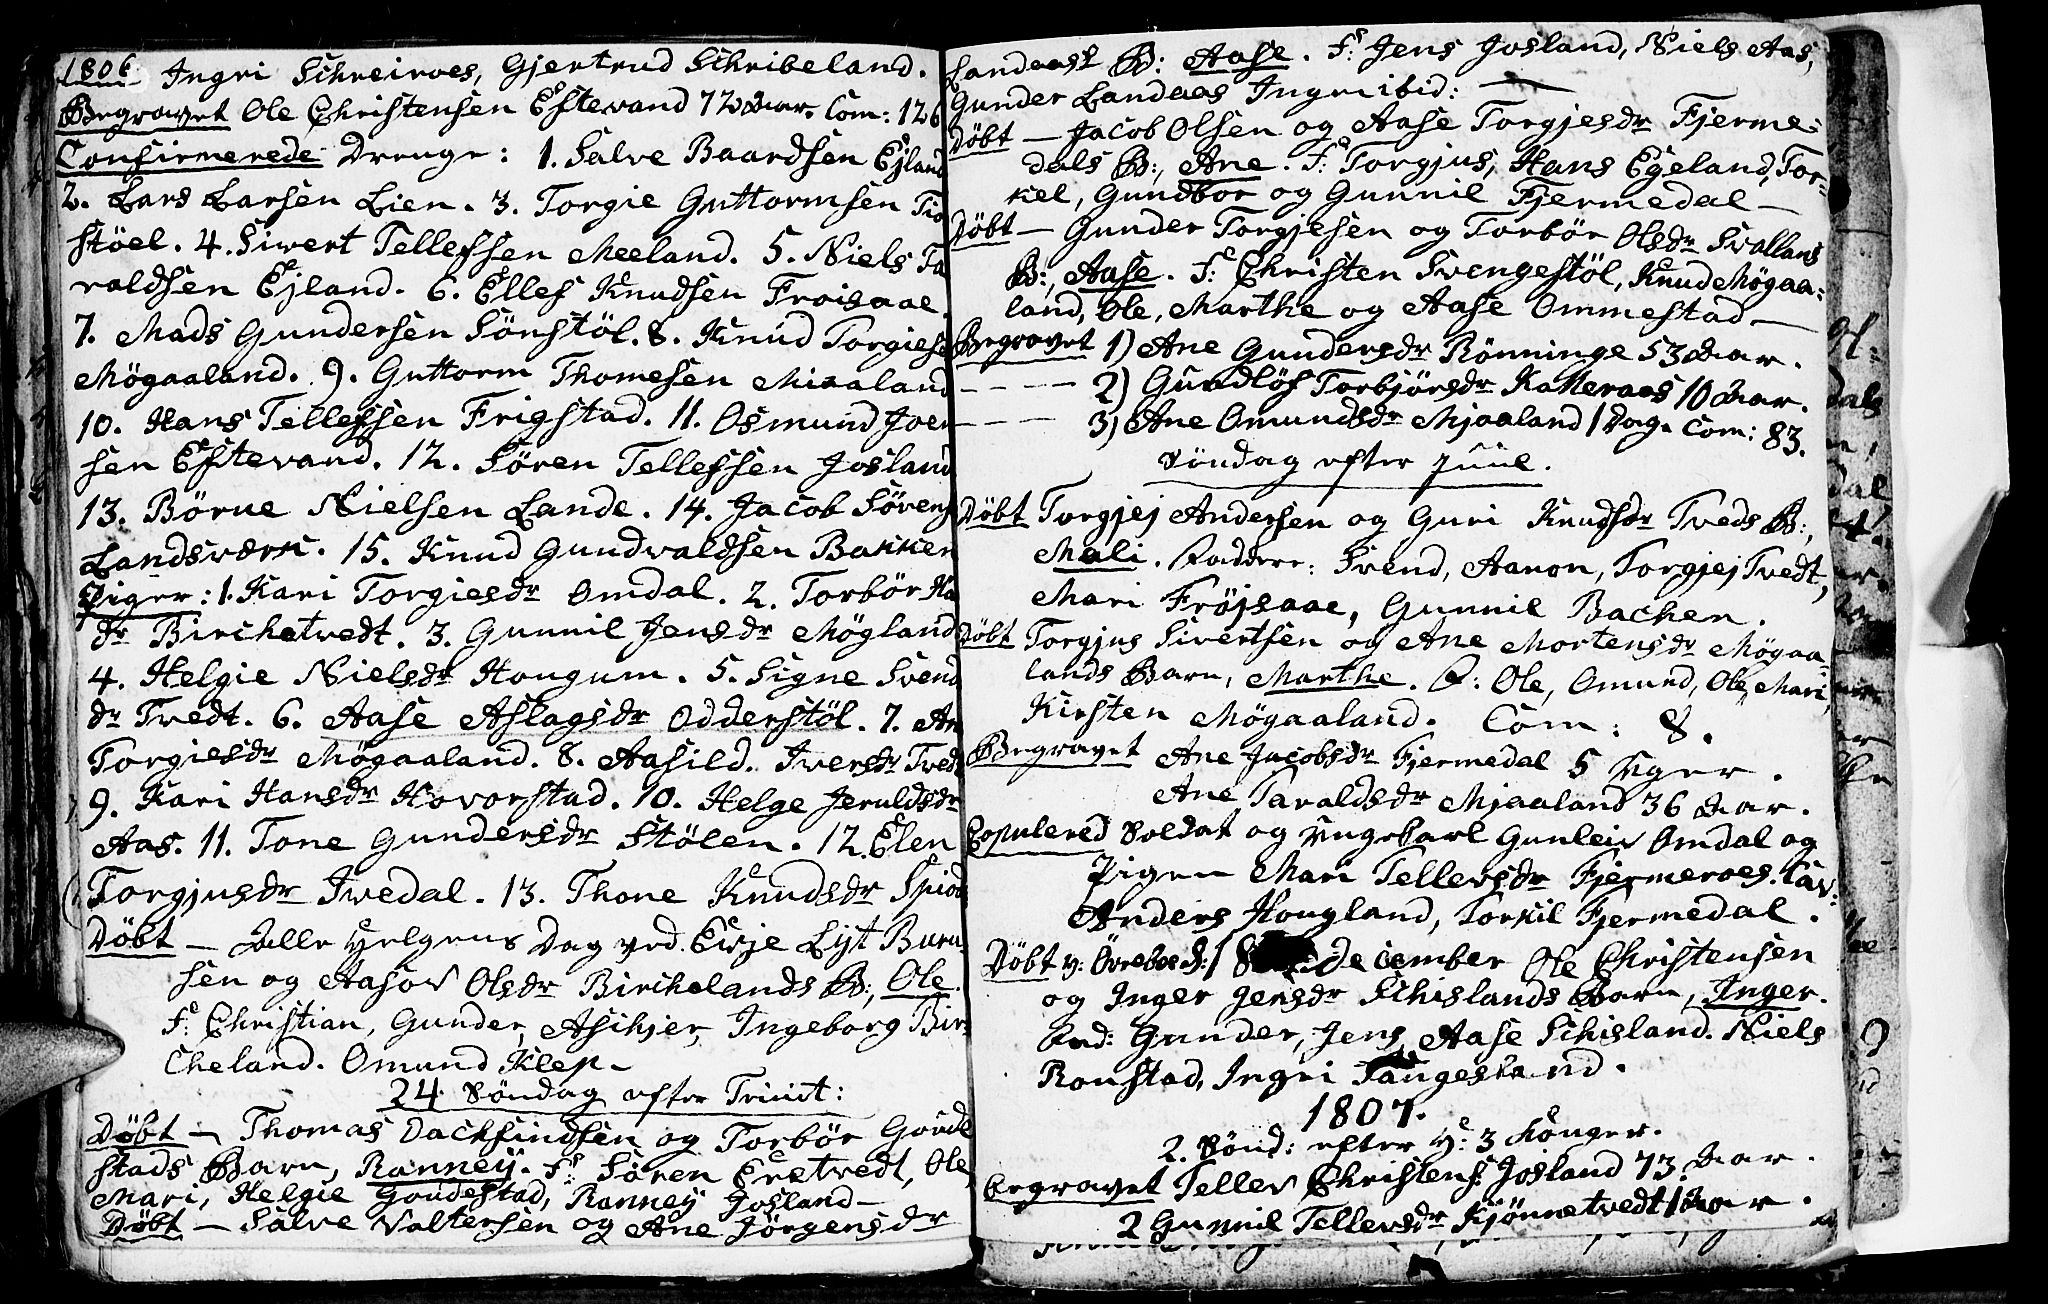 1806 Ingri Schreiroes, Gjertrud Schribeland.
Begravet Ole Christensen Eftevand 72 Aar. Com: 126
Confirmerede Drenge: 1. Salve Baardsen Ejland
2. Lars Larsen Lien. 3. Torgie Guttormsen Tio
stöel. 4. Siwert Tellefsen Meeland. 5. Niels Ta
raldsen Ejland. 6. Ellef Knudsen Froisaae.
7. Mads Gundersen Sönstöl. 8. Knud Torgiese
Mögaaland. 9. Guttorm Thomesen Miaaland
10. Hans Tellefsen Frigstad. 11. Osmund Joen
sen Eftevand. 12. Sören Tellefsen Josland
13. Börue Nielsen Lande. 14. Jacob Sörens
Landsværk. 15. Knud Gundvaldsen Bakken
Piger: 1. Kari Torgiesdr Omdal. 2. Torbör Ha
dr Birchetvedt. 3. Gunnil Jensdr Mögland
4. Helgie Nielsdr Hougum. 5. Signe Svend
dr Tvedt. 6. Aase Aslagsdr Odderstöl. 7. An
Torgiesdr Mögaaland. 8. Aasild Iversdr Tved
9. Kari Hansdr Hovorstad. 10. Helge Jeruldsdr
Aas. 11. Tone Gundersdr Stölen. 12. Elen
Torgjusdr Ivedal. 13. Thone Knudsdr Spiod
Döbt — Alle Helgens Dag ved Evje Lijt Buru-
sen og Aasov Olsdr Birchelands B:, Ole.
F: Christian, Gunder, Asikjer, Ingeborg Bir-
cheland. Omund Klep —
24 Söndag efter Trinit:
Döbt — Thomas Dachfindsen og Torbör Goude
stads Barn, Ranney. Fs Sören Eretvedt, Ole,
Mari, Helgie Goudestad, Ranney Josland —
Döbt — Salve Valtersen og Ane Jörgensdr
Landaass B: Aase. Fs Jens Josland, Niels Aas,
Gunder Landaas Ingri ibid: —
Döbt — Jacob Olsen og Aase Torgjesdr Fjerme-
dals B:, Ane. F: Torgjus, Hans Egeland, Tor-
kel, Gundbor og Gunnil Fjermedal —
Döbt — Gunder Torgjesen og Torbör Olsdr Svallans
B:, Aase. F: Christen Svengestöl, Knud Mögaa-
land, Ole, Marthe og Aase Ommestad —
Begravet 1) Ane Gundersdr Rönninge 53 Aar.
— — — 2) Gundlöf Torbjörsdr Katteraas 10 Aar.
— — — 3) Ane Omundsdr Mjaaland 1 Dag. Com: 83.
Söndag efter Juul.
Döbt Torgjej Andersen og Guri Knudsdr Tveds B:,
Mali. Faddere: Svend, Aanon, Torgjej Tvedt,
Mari Fröjsaae, Gunnil Bachen.
Döbt Torgjus Sivertsen og Ane Mortensdr Mögaa-
lands Barn, Marthe. F: Ole, Omund, Ole, Mari,
Kirsten Mögaaland. Com: 8.
Begravet Ane Jacobsdr Fjermedal 5 Uger.
Ane Taraldsdr Mjaaland 36 Aar.
Copulered Soldat og Ungekarl Gunleiv Omdal og
Pigen Mari Tellevsdr Fjermeroes. Cav:
Anders Hougland, Torkil Fjermedal.
Döbt v: Övreboe d: 18 December Ole Christensen
og Inger Jensdr Schislands Barn, Inger.
Fad: Gunder, Jens, Aase Schisland. Niels
Ronstad, Ingri Taugesland.
1807.
2. Sönd: efter H: 3 Konger.
Begravet Tellev Christens: Josland 73 Aar.
2 Gunnil Tellevsdr Kjönnetvedt 1 Aar.